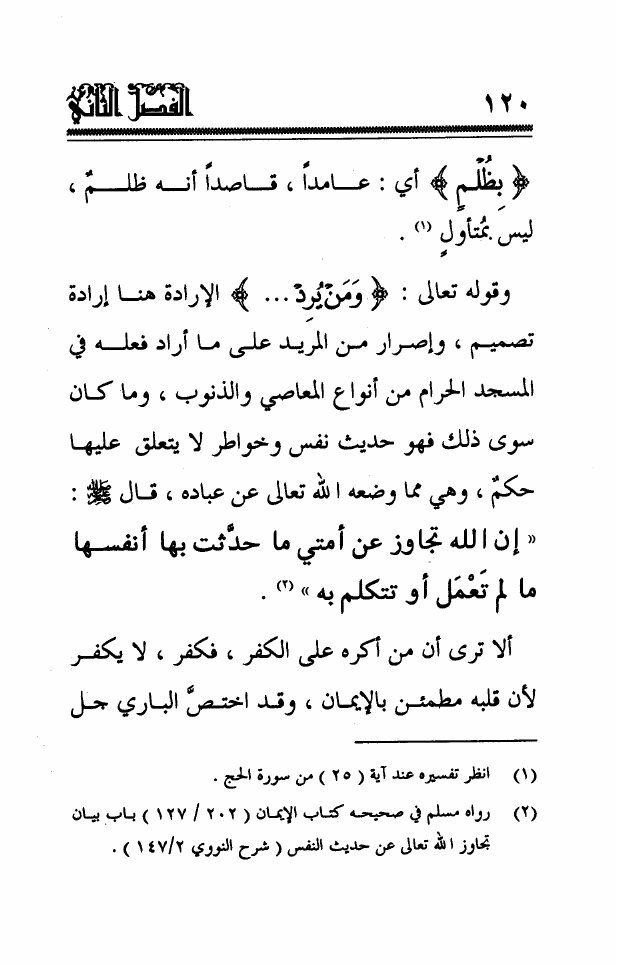 ١٢٠ الفصل الثاني
﴿ بِظُلْمٍ ﴾ أي : عـامداً ، قـاصداً أنـه ظلـمٌ ،
ليس بمُتأولٍ (١) .
وقوله تعالى : ﴿ وَمَنْ يُرِدْ ... ﴾ الإرادة هنـا إرادة
تصميـم ، وإصـرار مـن المريـد علـى مـا أراد فعلـه في
المسجد الحرام من أنواع المعاصي والذنوب ، وما كـان
سوى ذلك فهو حديث نفس وخواطر لا يتعلق عليهـا
حكمٌ ، وهي مما وضعه الله تعالى عن عباده ، قـال ﷺ :
« إن الله تجاوز عن أمتي ما حدَّثت بها أنفسـها
ما لم تَعْمَل أو تتكلم به » (٢) .
ألا ترى أن من أكره على الكفر ، فكفر ، لا يكفـر
لأن قلبه مطمئـن بالإيمـان ، وقـد اختـصَّ البـاري جـل
(١) انظر تفسيره عند آية ( ٢٥ ) من سورة الحج .
(٢) رواه مسلم في صحيحـه كتـاب الإيمـان ( ٢٠٢ / ١٢٧ ) بـاب بيـان
تجاوز الله تعالى عن حديث النفس ( شرح النووي ١٤٧/٢ ) .